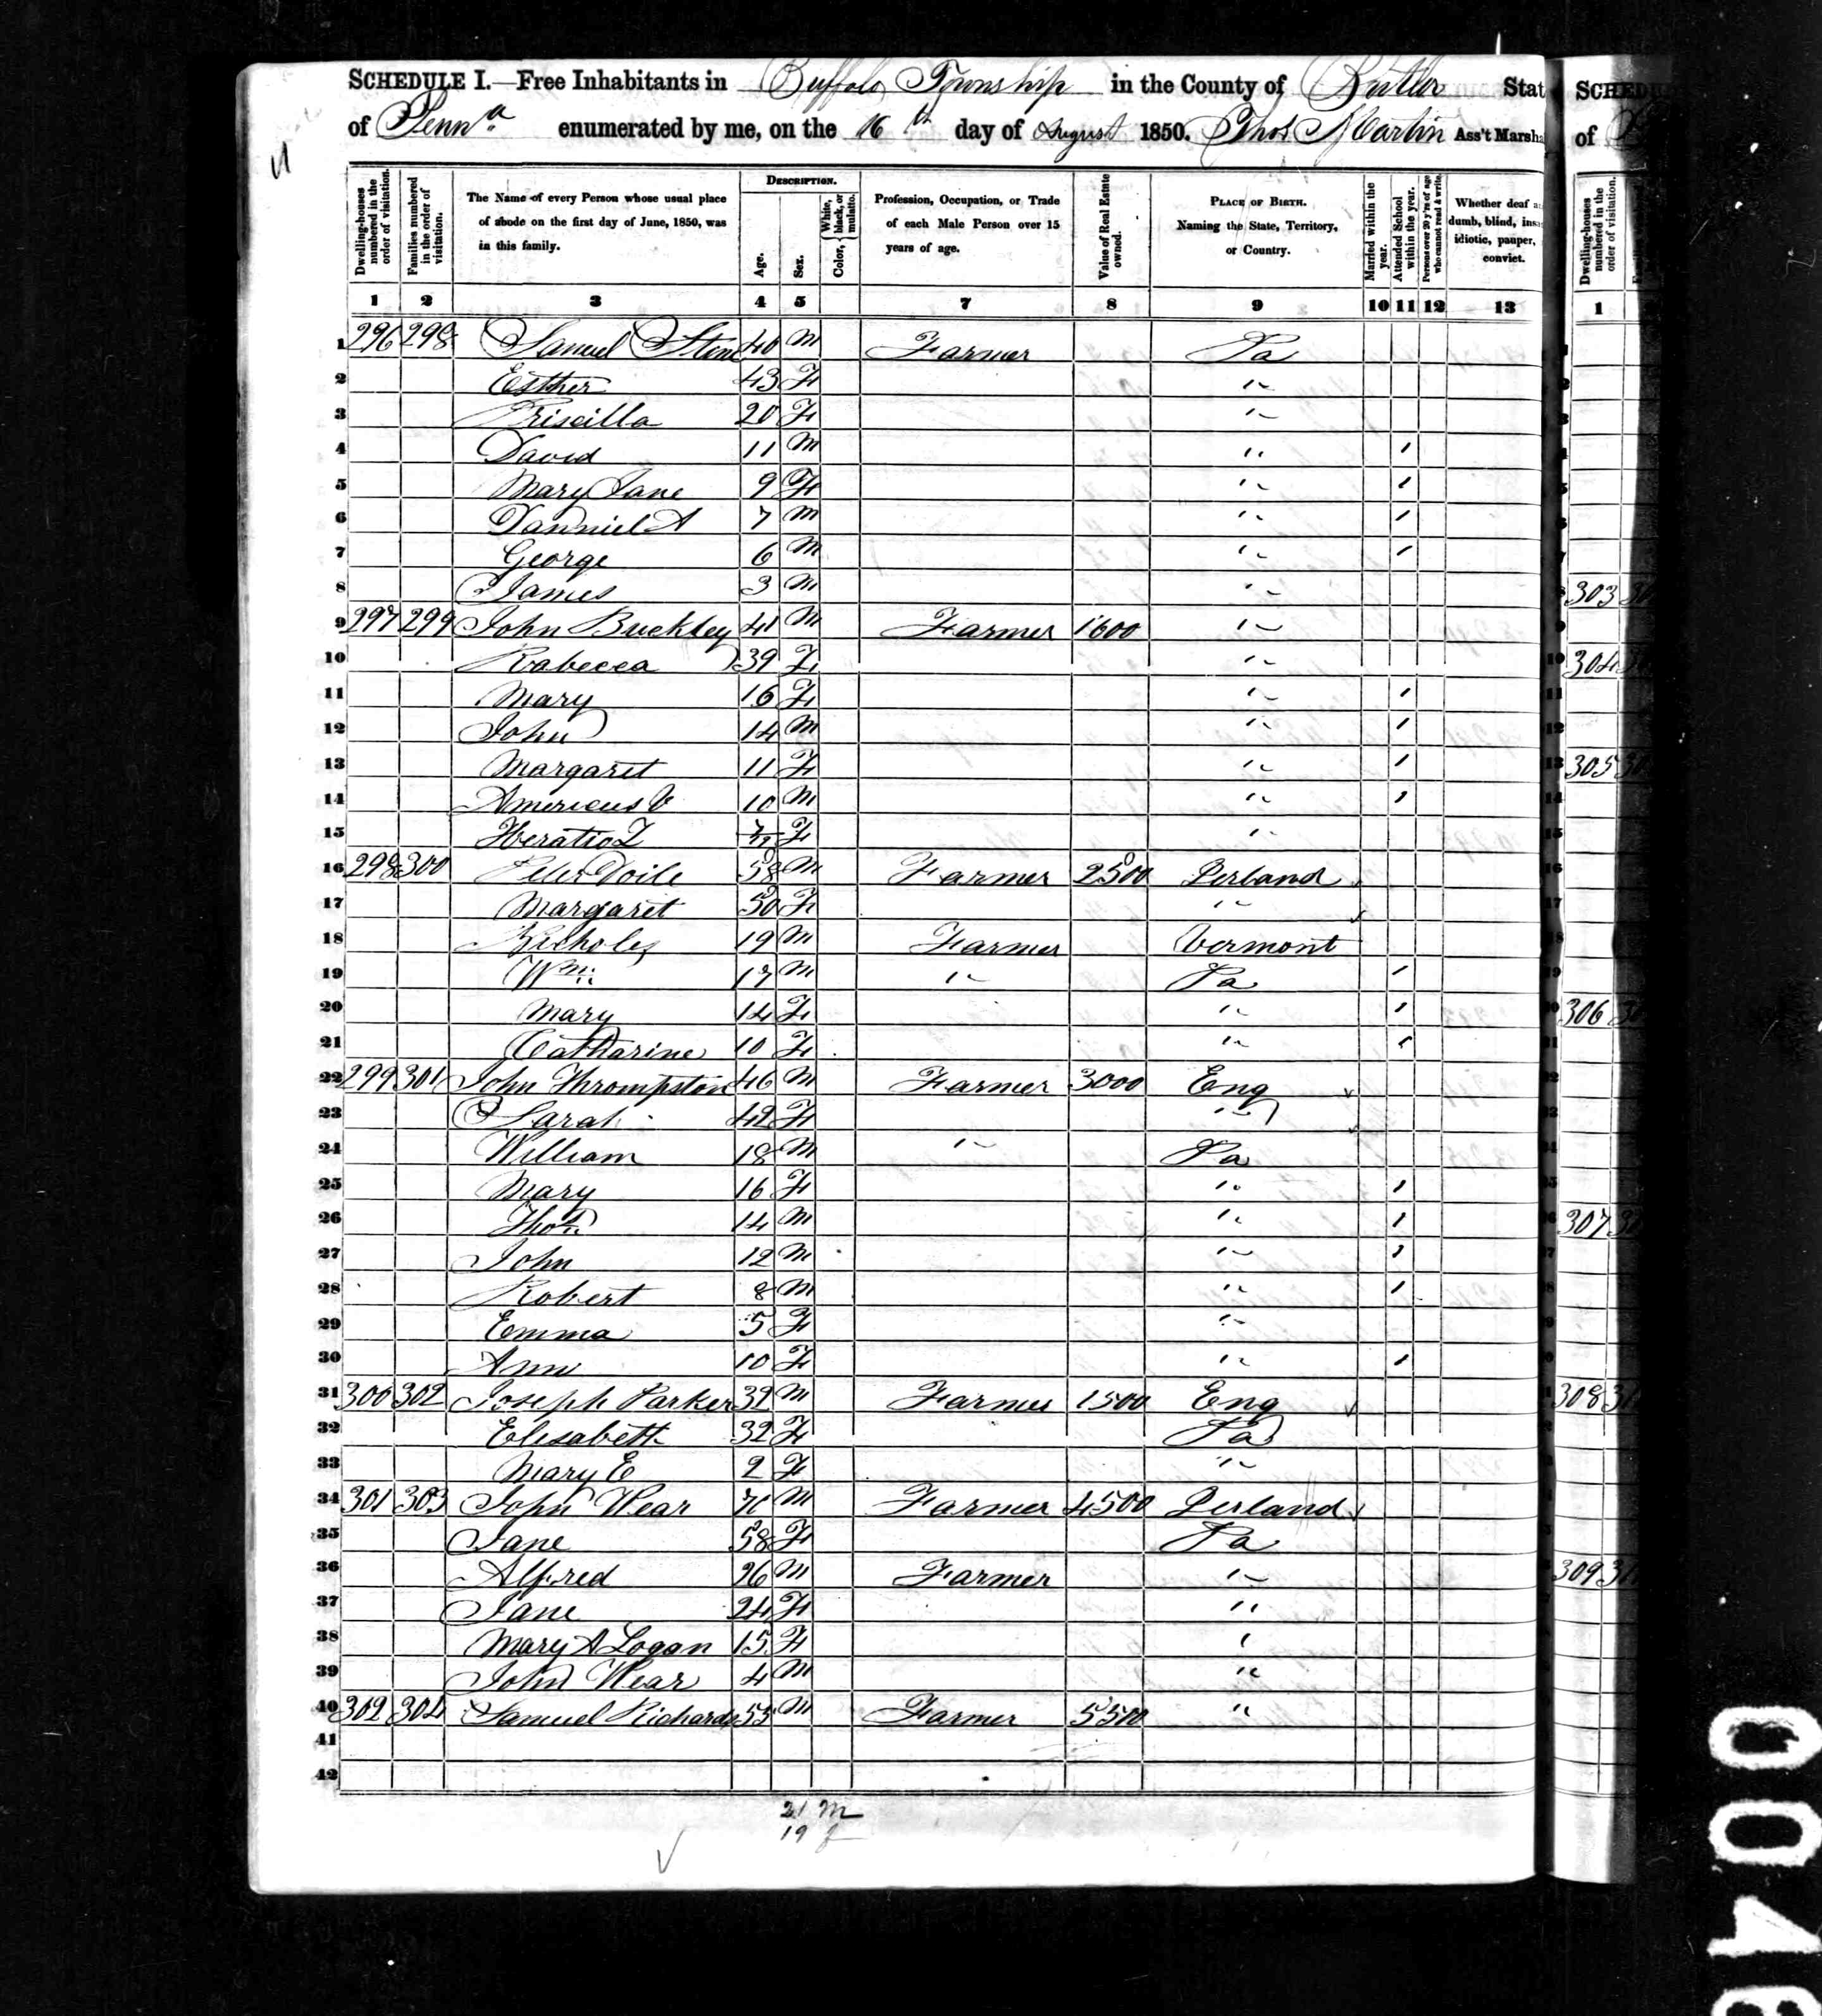 SCHEDULE I.—Free Inhabitants in Buffalo Township in the County of Butler Stat
of Penn a enumerated by me, on the 16 th day of August 1850. Thos Martin Ass't Marsha
Dwelling-houses numbered in the order of visitation.
Families numbered in the order of visitation.
The Name of every Person whose usual place of abode on the first day of June, 1850, was in this family.
DESCRIPTION.
Age.
Sex.
Color, White, black, or mulatto.
Profession, Occupation, or Trade of each Male Person over 15 years of age.
Value of Real Estate owned.
PLACE OF BIRTH. Naming the State, Territory, or Country.
Married within the year.
Attended School within the year.
Persons over 20 y'rs of age who cannot read & write.
Whether deaf a dumb, blind, insa idiotic, pauper, convict.
1 2 3 4 5 7 8 9 10 11 12 13
1 296 298 Samuel 40 M Farmer Pa
2 Esther 43 F "
3 Priscilla 20 F "
4 David 11 M " /
5 Mary Jane 9 F " /
6 Danniel A 7 M " /
7 George 6 M " /
8 James 3 M "
9 297 299 John Buckley 41 M Farmer 1600 "
10 Rabecca 39 F "
11 Mary 16 F " /
12 John 14 M " /
13 Margaret 11 F " /
14 Americus V 10 M " /
15 Horatio F "
16 298 300 Peter Doile 58 M Farmer 2500 Ierland
17 Margaret 50 F "
18 Nicholes 19 M Farmer Vermont
19 Wm 17 M " Pa /
20 Mary 14 F " /
21 Catharine 10 F " /
22 299 301 John Thrompston 46 M Farmer 3000 Eng
23 Sarah 42 F "
24 William 18 M " Pa
25 Mary 16 F " /
26 Thos 14 M " /
27 John 12 M " /
28 Robert 8 M " /
29 Emma 5 F "
30 Ann 10 F " /
31 300 302 Joseph Parker 32 M Farmer 1500 Eng
32 Elisabeth 32 F Pa
33 Mary E 2 F "
34 301 303 John Wear 70 M Farmer 4500 Ierland
35 Jane 58 F Pa
36 Alfred 26 M Farmer "
37 Jane 24 F "
38 Mary A Logan 15 F "
39 John Wear 4 M "
40 302 304 Samuel Richards 55 M Farmer "
41
42
21 M
19 f
SCHED
of
Dwelling-houses numbered in the order of visitation.
1
303
304
305
306
307
308
309